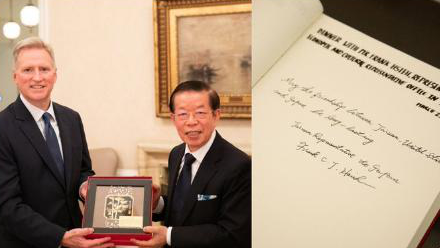 DINNER WITH MR. FRANK HSIEH, REPRESEN
ECONOMIC AND CULTURAL REPRESENTATIVE OFFICE IN
May the friendship between Taiwan, United States
and Japan be long lasting
Taiwan Representative to Japan
Frank C. T. Hsieh